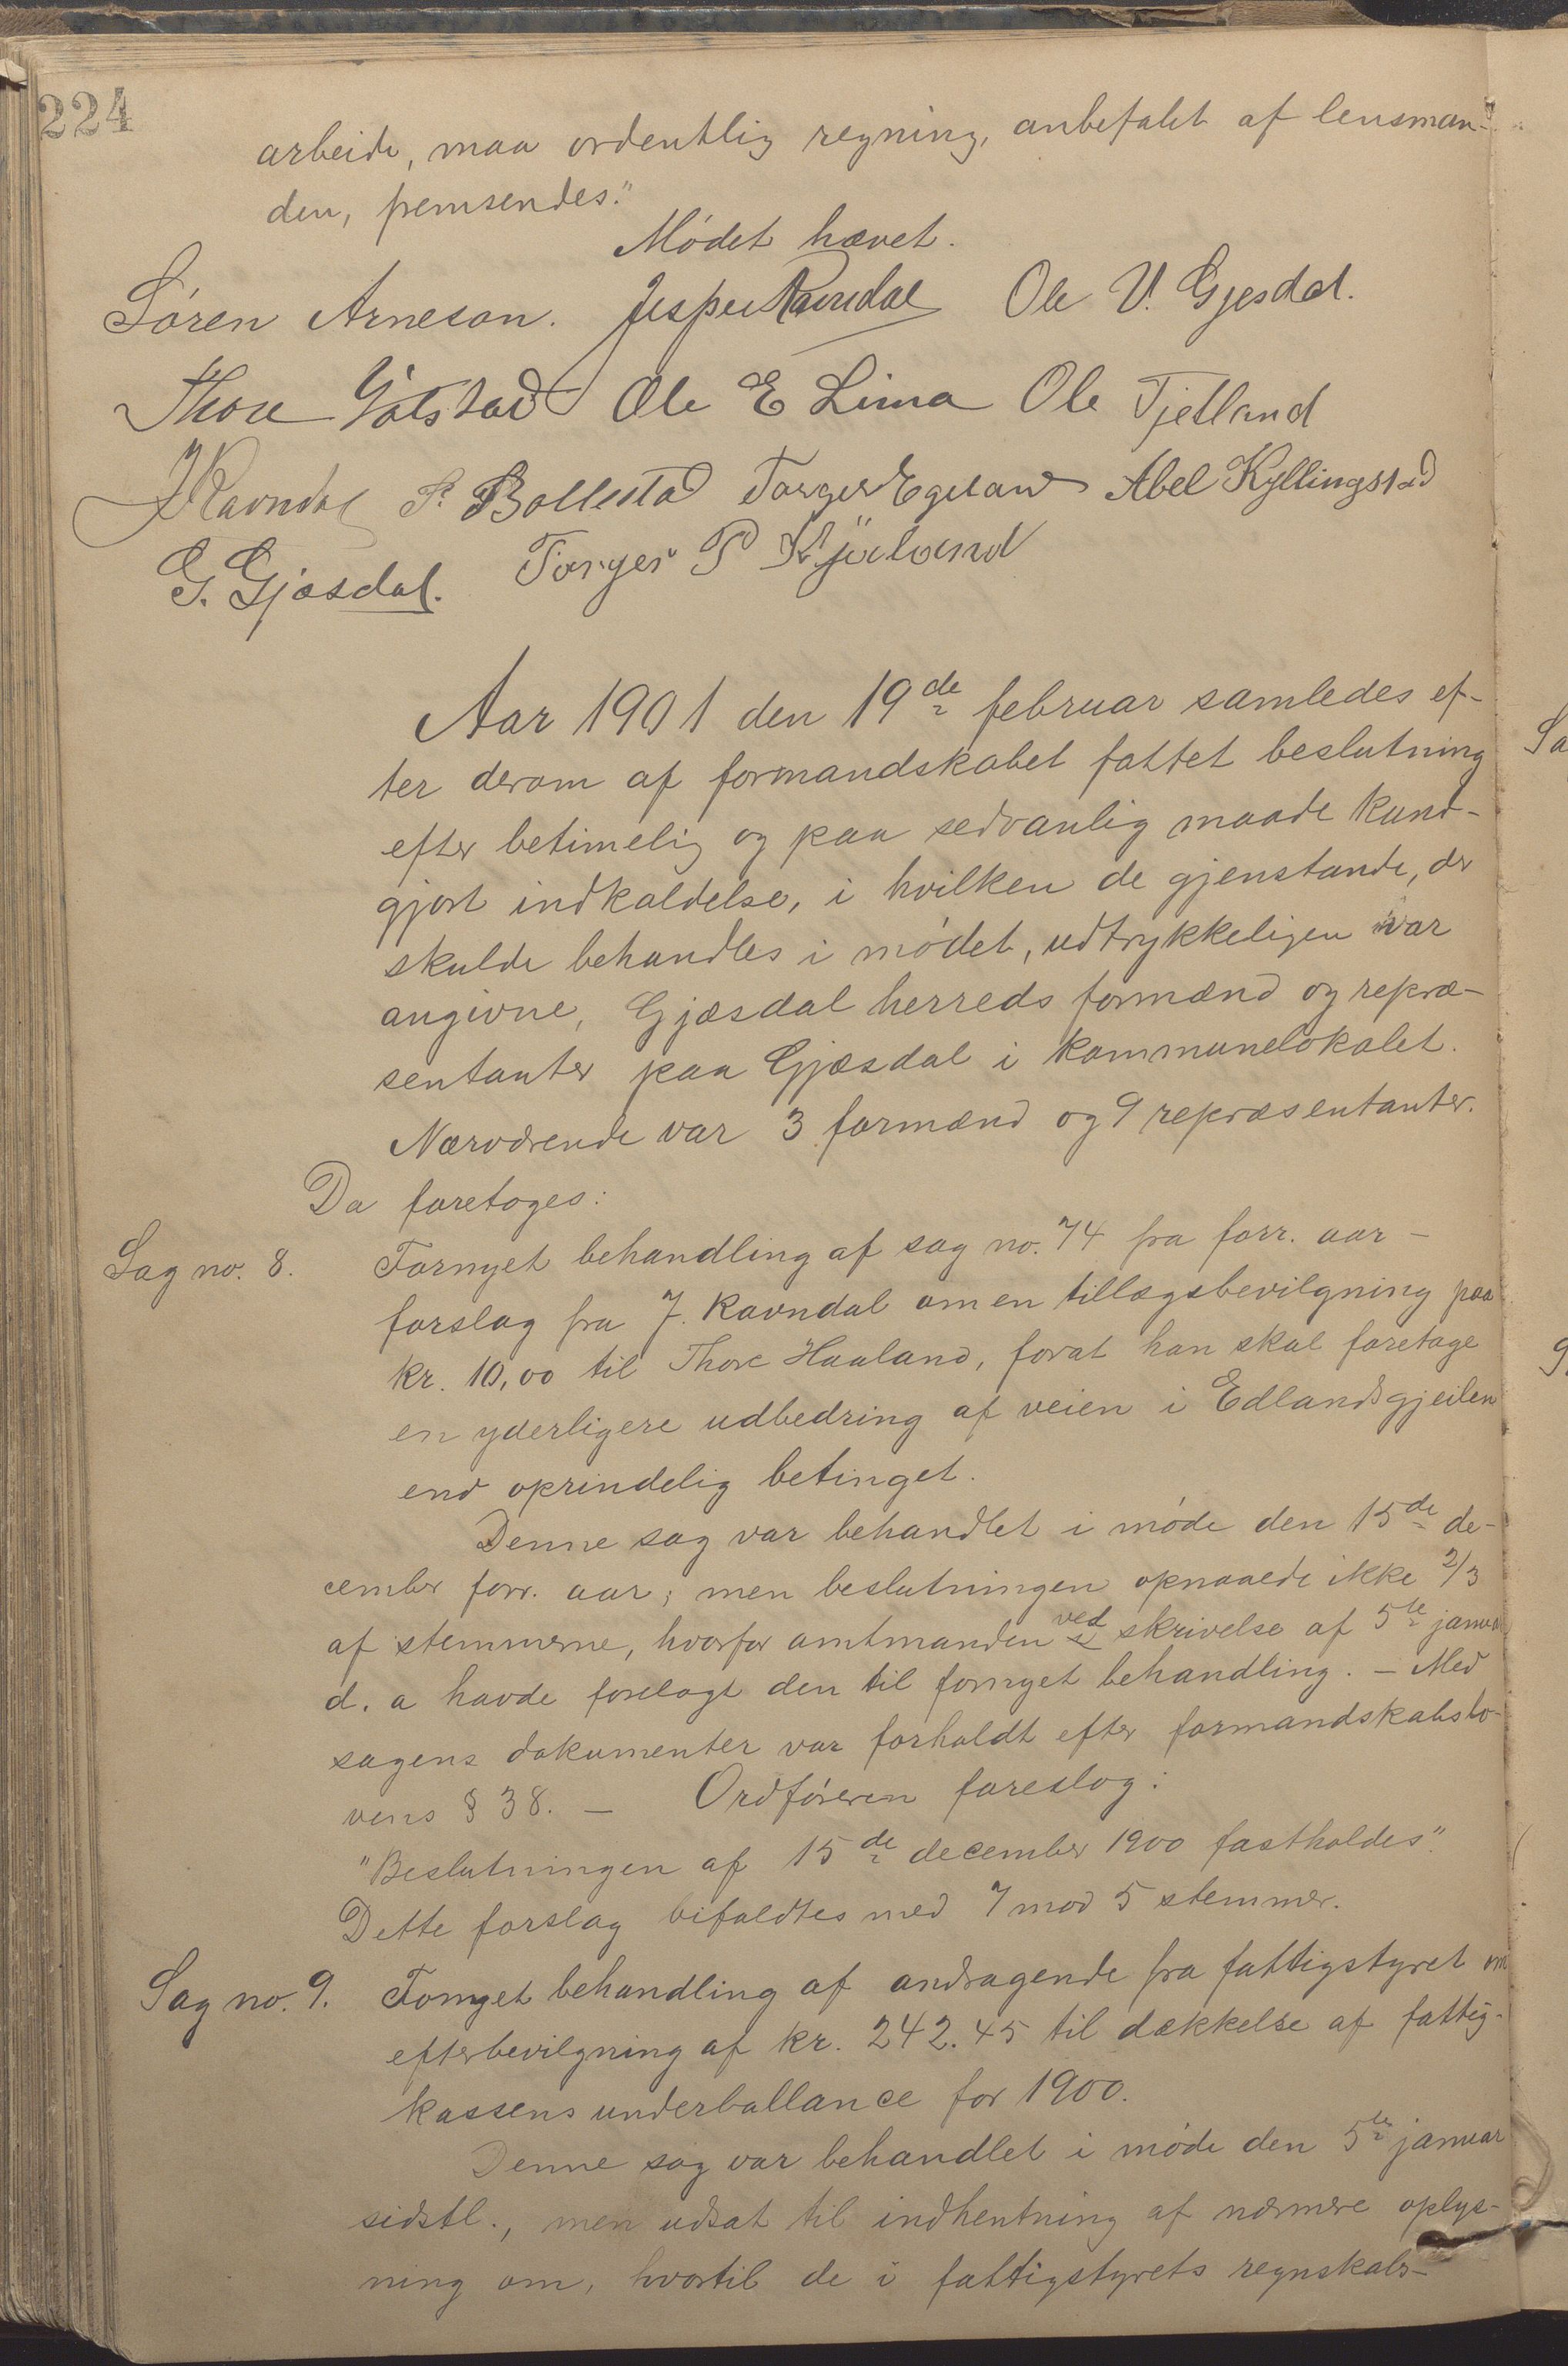 224
arbeide, maa ordentlig regning, anbefalet af lensman-
den, fremsendes."
Mødet hævet.
Søren Arneson. Jesper Ravndal Ole V. Gjesdal.
Thore Ole E Lima Ole Tjetland
J Ravndal P. Bollestad Torger Egeland Abel Kyllingstad
G. Gjæsdal. Torger P Kjølland
Aar 1901 den 19de februar samledes ef-
ter derom af formandskabet fattet beslutning
efter betimelig og paa sedvanlig maade kund-
gjort indkaldelse, i hvilken de gjenstande, der
skulde behandles i mødet, udtrykkeligen var
angivne, Gjæsdal herreds formænd og repræ-
sentanter paa Gjæsdal i kommunelokalet.
Nærværende var 3 formænd og 9 repræsentanter.
Da foretoges:
Sag no. 8. Fornyet behandling af sag no. 74 fra forr. aar –
forslag fra J. Ravndal om en tillægsbevilgning paa
kr. 10,00 til Thore Haaland, forat han skal foretage
en yderligere udbedring af veien i Edlandsgjeilen
end oprindelig betinget.
Denne sag var behandlet i møde den 15de de-
cember forr. aar; men beslutningen opnaaede ikke 2/3
af stemmerne, hvorfor amtmanden ved skrivelse af 5te januar
d. a havde forelagt den til fornyet behandling. – Med
sagens dokumenter var forholdt efter formandskabslo-
vens § 38. – Ordføreren foreslog:
"Beslutningen af 15de december 1900 fastholdes".
Dette forslag bifaldtes med 7 mod 5 stemmer.
Sag no. 9. Fornyet behandling af andragende fra fattigstyret om
efterbevilgning af kr. 242.45 til dækkelse af fattig-
kassens underballance for 1900.
Denne sag var behandlet i møde den 5te januar
sidstl., men udsat til indhentning af nærmere oplys-
ning om, hvortil de i fattigstyrets regnskabs-